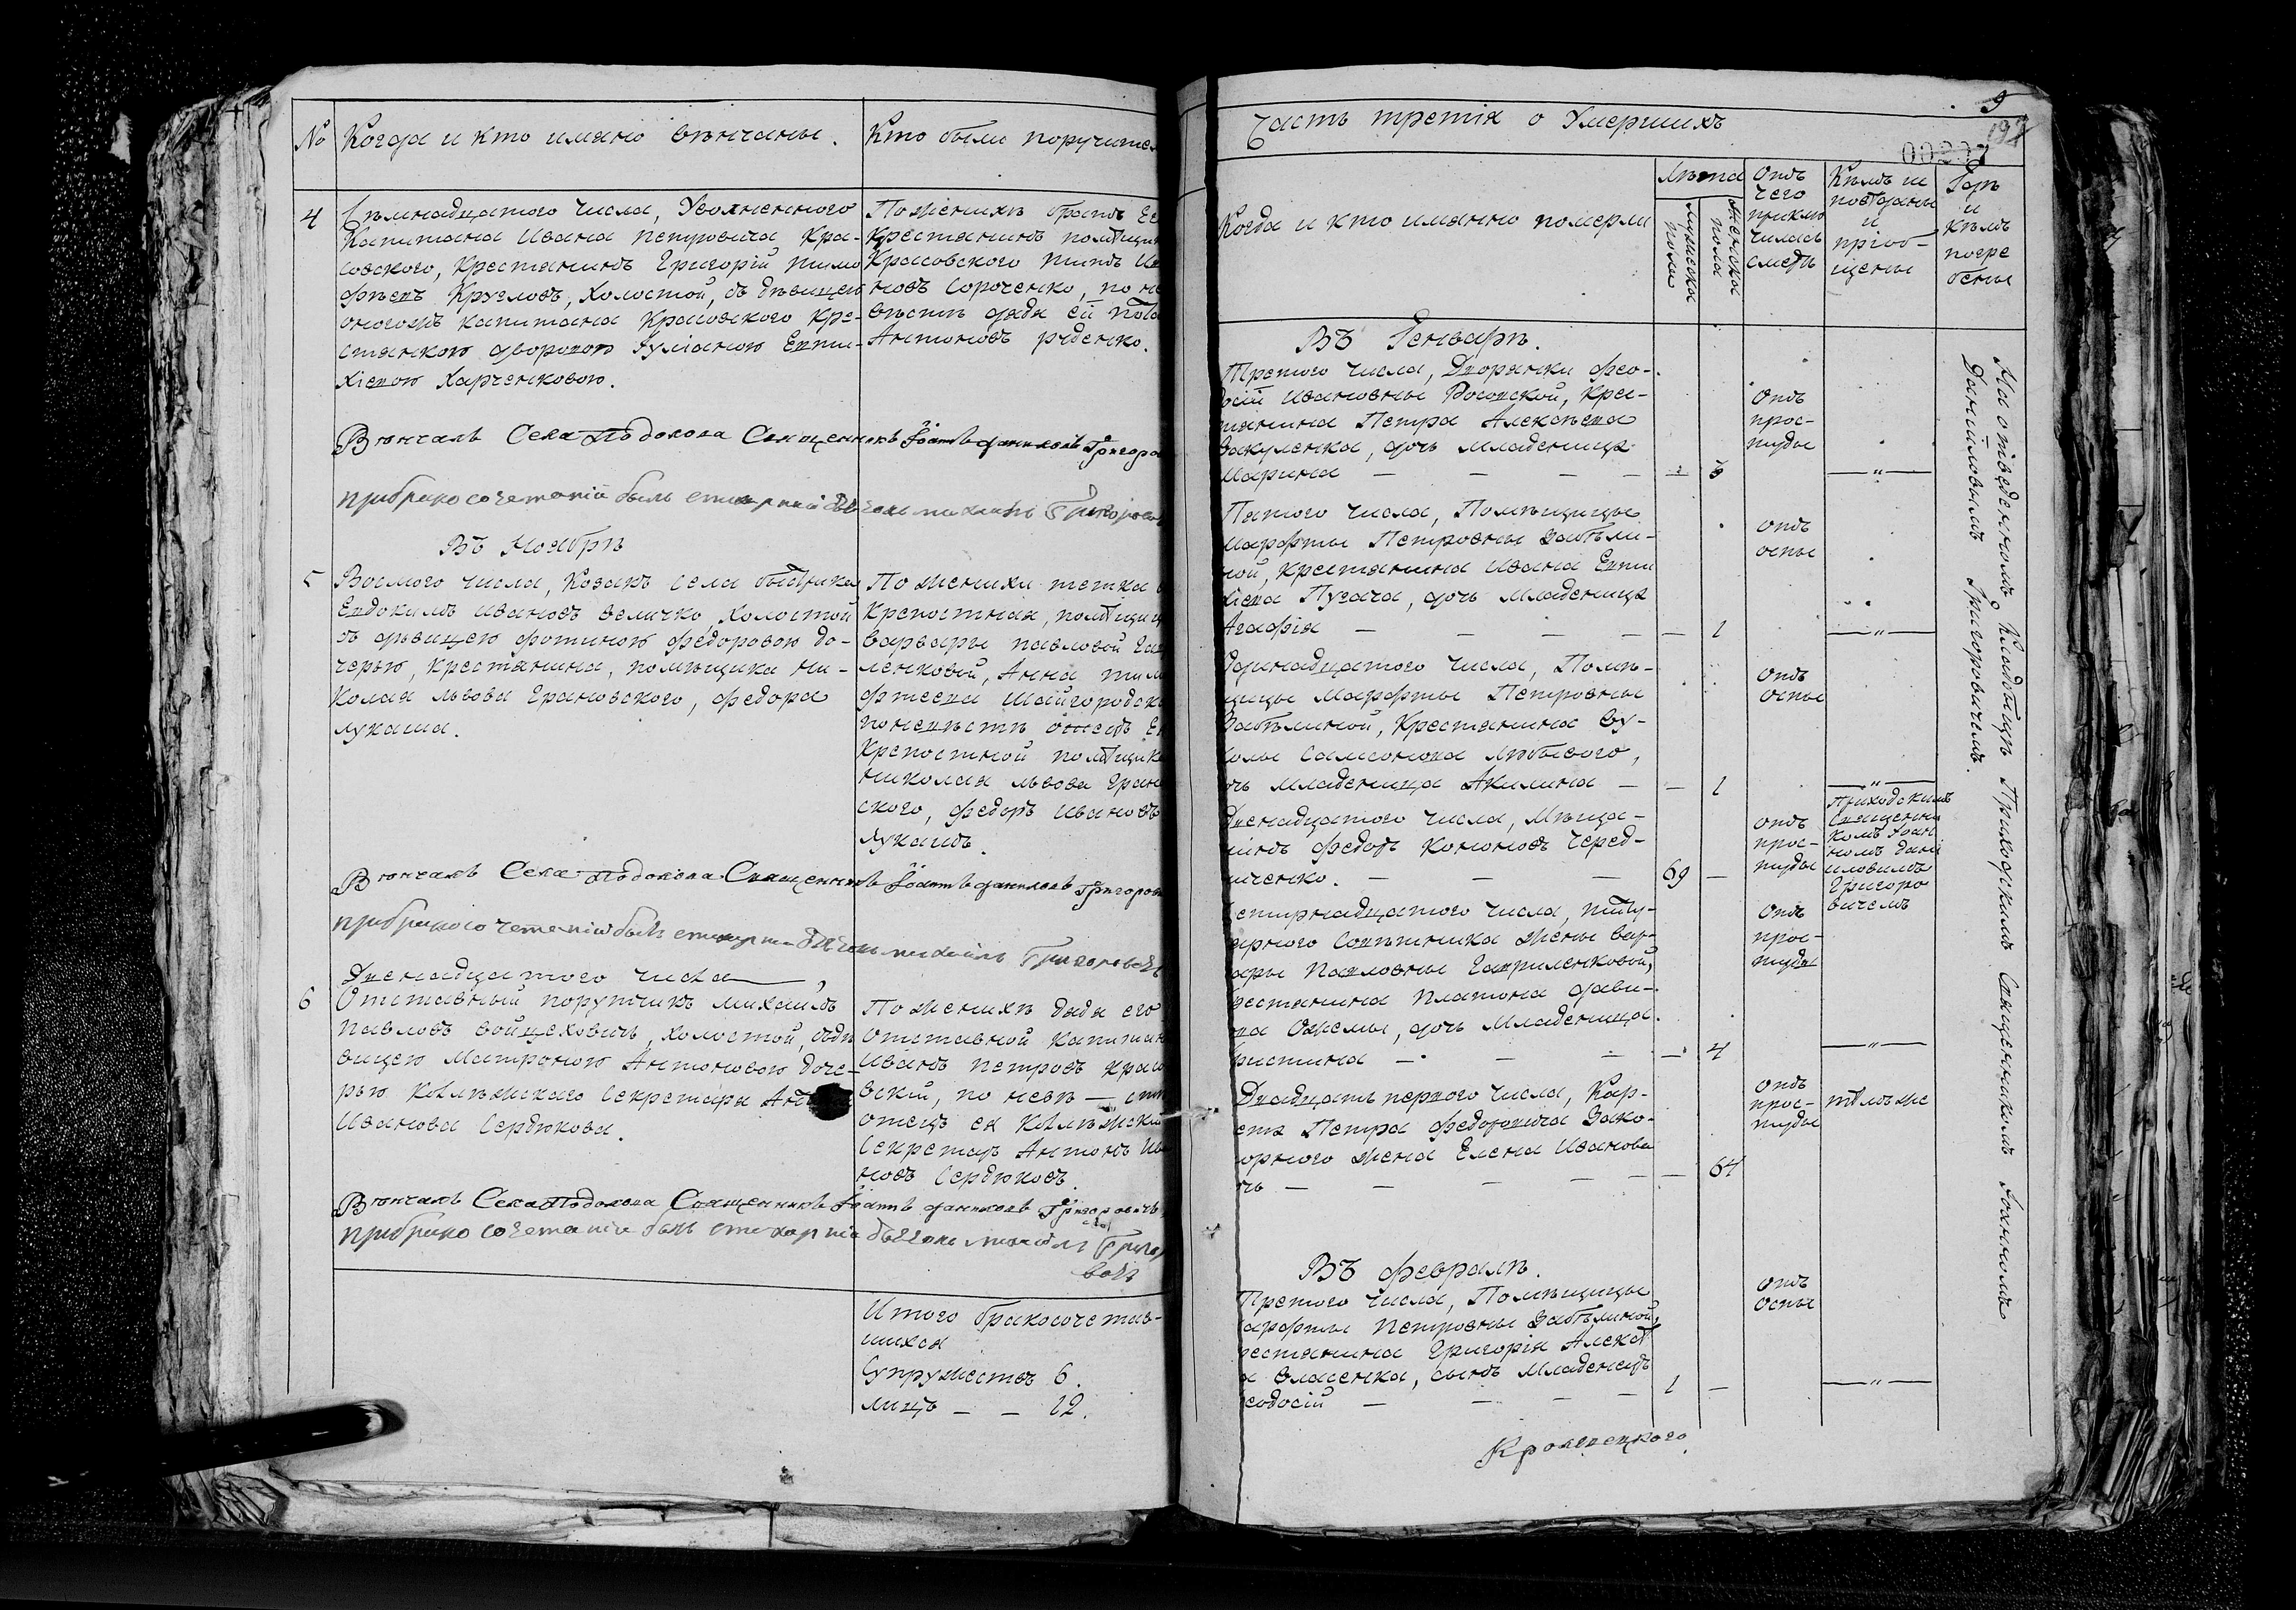 № Когда и кто имяно венчаны. Кто были поручите
4 Семнадцатого числа, Уволненного
Капитана Ивана Петровича Кра-
совского, Крестянинъ Григорій Тимо
фѣевъ Кругловъ, холостой, съ дѣвицею
оногожъ капитана Красовского кре-
стянкою дворовою Іуліаною Евти-
хіевою Харченковою.
По женихѣ братъ Ег
Крестянинъ помѣщик
Красовского Титъ Ив
новъ Сороченко, по не
вѣстѣ дядя ей
Антоновъ руденко.
Вѣнчалъ Села Подолова Священникъ Іоаннъ Даниловъ Григоро
при брако сочетаніи былъ стихарний Дячокъ михаилъ Григорове
Въ Ноябрѣ
5 Восмого числа, Козакъ села
Евдокимъ Ивановъ Величко, холостой
съ дѣвицею Фотиною Федоровою до-
черью, крестянина, помѣщика Ни-
колая львова Грановского, Федора
лукаша.
По женихѣ тетка
крепостная, помѣщиц
варвары павловой Гав
ленковой, Анна тим
фѣева Шайгородск
по невѣстѣ отецъ Е
Крепостной помѣщика
николая львова Гран
ского, Федоръ Ивановъ
лукашъ.
Вѣнчалъ Села Подолова Священникъ Іоаннъ Даниловъ Григоров
при брако сочетаніи былъ стихарни Дячокъ михаилъ Григоровичъ
Двенадцатого числа
6 Отставный порутчикъ михаилъ
Павловъ войцеховичъ, холостой, съ дѣ
вицею Матроною Антоновою доче-
рью Коллѣжскаго Секретаря Ант
Иванова Сердюкова.
По женихѣ дядя его
отставной капитан
Иванъ петровъ красо
вский, по невѣ — стѣ
отецъ ея Коллѣжски
Секретарь Антонъ Ива
новъ Сердюковъ.
Вѣнчалъ Села Подолова Священникъ Іоаннъ Даниловъ Григоровичъ
при брако сочетаніи былъ стихарни Дячокъ михаилъ Григо
вичъ
Итого бракосочетав-
шихся
Супружествъ 6.
лицъ — — 12.
9
197
Часть третія о Умершихъ
Когда и кто имянно померли
Лѣта
Мужеска пола
Женска пола
Отъ чего приклю чилась смерть
Кѣмъ исповѣданы и пріоб- щены
Гдѣ и кѣмъ погре бены
Въ Генварѣ.
Третого числа, Дворянки Фео-
досіи Ивановны Росовской, Кре-
тянина Петра Алексѣева
Закуленка, дочь Младеница
Марина — — — — — 3
Отъ
прос-
туды
Пятого числа, Помѣщицы
Марфты Петровны Забѣли-
ной, Крестянина Ивана Евти
хіева Пугача, дочь Младеница
Агафія — — — — — 1
отъ
оспы
динадцатого числа, Помѣ-
щицы Марфты Петровны
Забѣлиной, Крестянина Ву-
колы Самсонова Любивого,
чь Младеница Акилина — — 1
Отъ
оспы
Двенадцатого числа, Мѣща-
нинъ Федоръ Кононовъ Черед-
ниченко. — — — 69 —
Отъ
прос-
туды
Приходскимъ
Священни
комъ Іоан
номъ Дани
иловимъ
Григоро
вичемъ
етирнадцатого числа, титу-
ярного Совѣтника жены Вар-
ары Павловны Гавриленковой,
рестянина Платона Дави-
ва Ожемы, дочь Младеница
ристина — — — — 4
Отъ
прос-
туды
Двадцать первого числа, Кор-
ета Петра Федоровича Зако-
орного жена Елена Иванова
чь — — — — — — 64
Отъ
прос-
туды
тѣмъ же
Въ Февралѣ.
Третого числа, Помѣщицы
арфты Петровны Забѣлиной,
рестянина Григорія Алексѣ
а Власенка, сынъ Младенецъ
еодосій — — — — 1 —
Отъ
Оспы
На отвѣденномъ Кладбищѣ Приходскимъ Священникомъ Іоанномъ
Даниловымъ Григоровичемъ.